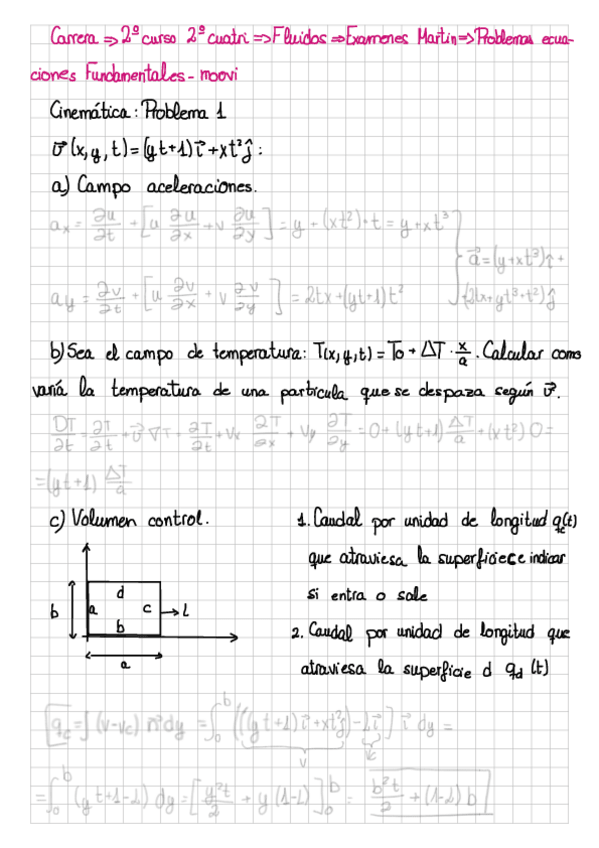 Carrera ⇒ 2º curso 2º cuatri ⇒ Fluidos ⇒ Examenes Martin ⇒ Problemas ecua-
ciones Fundamentales - moovi
Cinemática: Problema 1
v⃗(x,y,t)=(yt+1)i⃗+xt²ĵ:
a) Campo aceleraciones.
ax = ∂u/∂t + [u ∂u/∂x + v ∂u/∂y] = y + (xt²)·t = y + xt³
a⃗=(y+xt³)î+
ay = ∂v/∂t + [u ∂v/∂x + v ∂v/∂y] = 2tx + (yt+1)t²
(2tx+yt³+t²)ĵ
b) Sea el campo de temperatura: T(x,y,t) = To + ΔT · x/a. Calcular como
varía la temperatura de una partícula que se despaza según v⃗.
DT/∂t = ∂T/∂t + v⃗ ∇T = ∂T/∂t + vx ∂T/∂x + vy ∂T/∂y = 0 + (yt+1) ΔT/a + (xt²) 0 =
=(yt+1) ΔT/a
c) Volumen control.
1. Caudal por unidad de longitud qc(t)
que atraviesa la superficie c e indicar
si entra o sale
2. Caudal por unidad de longitud que
atraviesa la superficie d qd (t)
d
b a c → L
b
a
qc = ∫ (v-vc) n⃗ dy = ∫₀ᵇ [((yt+1)i⃗+xt²j⃗)-Li⃗] i⃗ dy =
v vc
= ∫₀ᵇ (yt+1-L) dy = [y²t/2 + y(1-L)]₀ᵇ = b²t/2 + (1-L) b